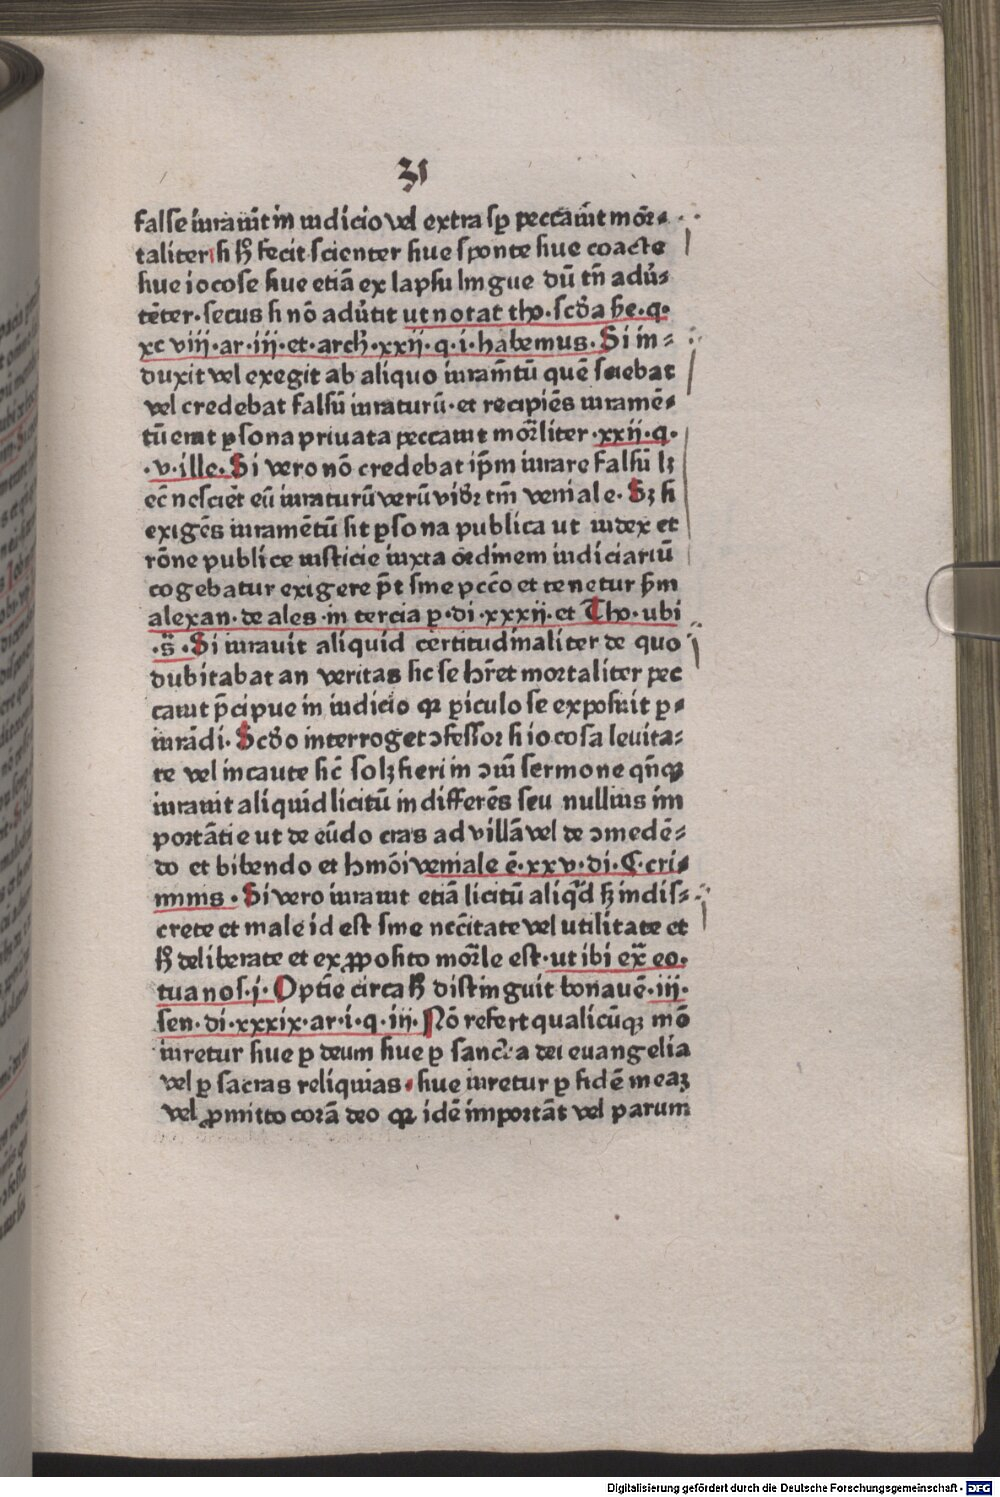 31
false iurauit̄ in iudicio vel extra sꝑ peccauīt mor̄-
taliter si hͦ fecit scienter siue sponte siue coacte
siue iocose siue etiā ex lapsu lingue dū tn̄ adū-
tēter. secus si nō adūtit ut notat tho. scd̄a sc̄e. q.
xcviij. ar. iij. et. arch̄. xxij. q. i. habemus. Si in-
duxit vel exegit ab aliquo iuram̄tū quē sciebat
vel credebat falsū iuraturū. et recipiēs iuramē-
tū erat ꝑsona priuata peccauit mor̄liter. xxij. q.
.v. ille. Si vero nō credebat ip̄m iurare falsū lꝫ
ec̄ nesciēt eū iuraturū verū vid̄r tm̄ veniale. Sꝫ si
exigēs iuramētū sit ꝑsona publica ut iudex et
rōne publice iusticie iuxta ordinem iudiciariū
cogebatur exigere pt̄ sine pccō et tenetur sm̄
alexan. de ales. in tercia p. di. xxxij. et Tho. ubi
.s̄. Si iurauit aliquid certitudinaliter de quo
dubitabat an veritas sic se hr̄et mortaliter pec
cauit p̄cipue in iudicio qꝛ ꝑiculo se exposuit ꝑ-
iurādi. Scd̄o interroget ↄfessor si iocosa leuita-
te vel incaute sic̄ solꝫ fieri in ↄiu̅ sermone qn̄qꝫ
iurauit aliquid licitū indifferēs seu nullius im
portātie ut de eūdo cras ad villā vel de ↄmedē-
do et bibendo et hmōi veniale ē. xxv. di. C. cri-
minis. Si vero iurauit etiā licitū aliqd̄ sꝫ indis-
crete et male id est sine nccītate vel utilitate et
hͦ deliberate et ex ꝓposito mor̄le est. ut ibi ex̄ eo.
tua nos. j. Optie circa hͦ distinguit bonauē. iij.
sen. di. xxxix. ar. i. q. iij. Nō refert qualicūqꝫ mō
iuretur siue ꝑ deum siue ꝑ sancta dei euangelia
vel ꝑ sacras reliquias. siue iuretur ꝑ fidē meaꝫ
vel ꝓmitto corā deo qꝛ idē importāt vel parum
Digitalisierung gefördert durch die Deutsche Forschungsgemeinschaft - DFG